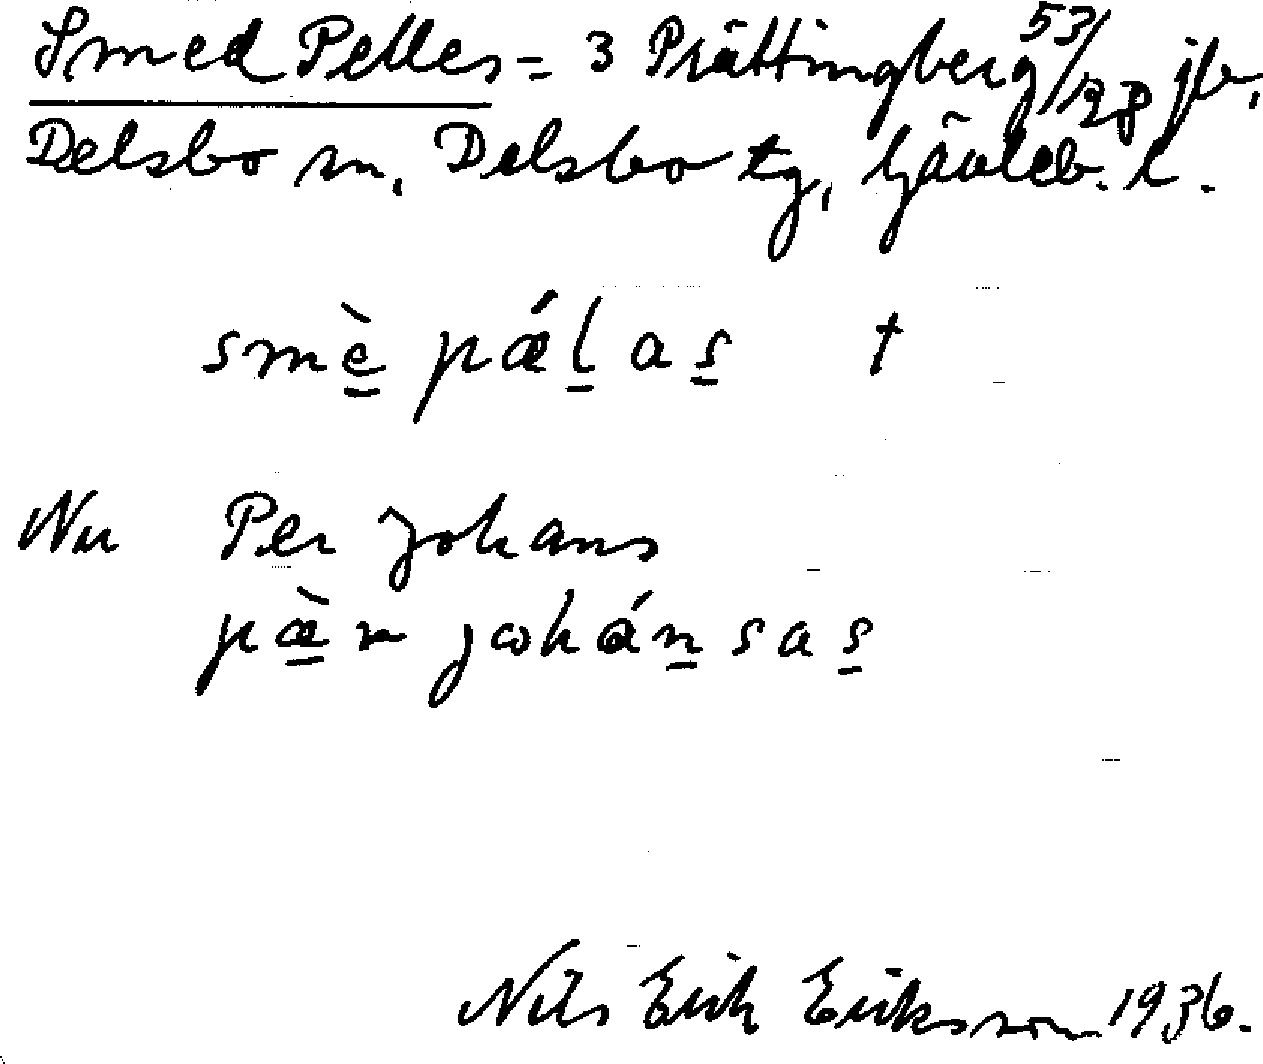 Smed Pelles = 3 Prättingberg 53/128 jb,
Delsbo sn, Delsbo tg, Gävleb. l.
smè pǽl a s †
Nu Per Johans
pæ̀r jωhánsas
Nils Erik Eriksson 1936.